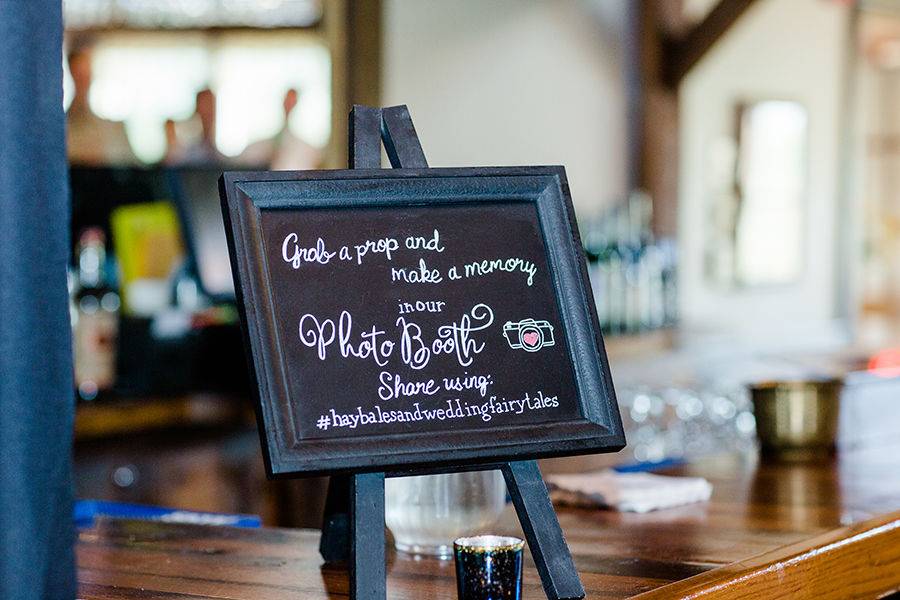 Grab a prop and
make a memory
in our
Photo Booth
Share using:
#haybalesandweddingfairytales